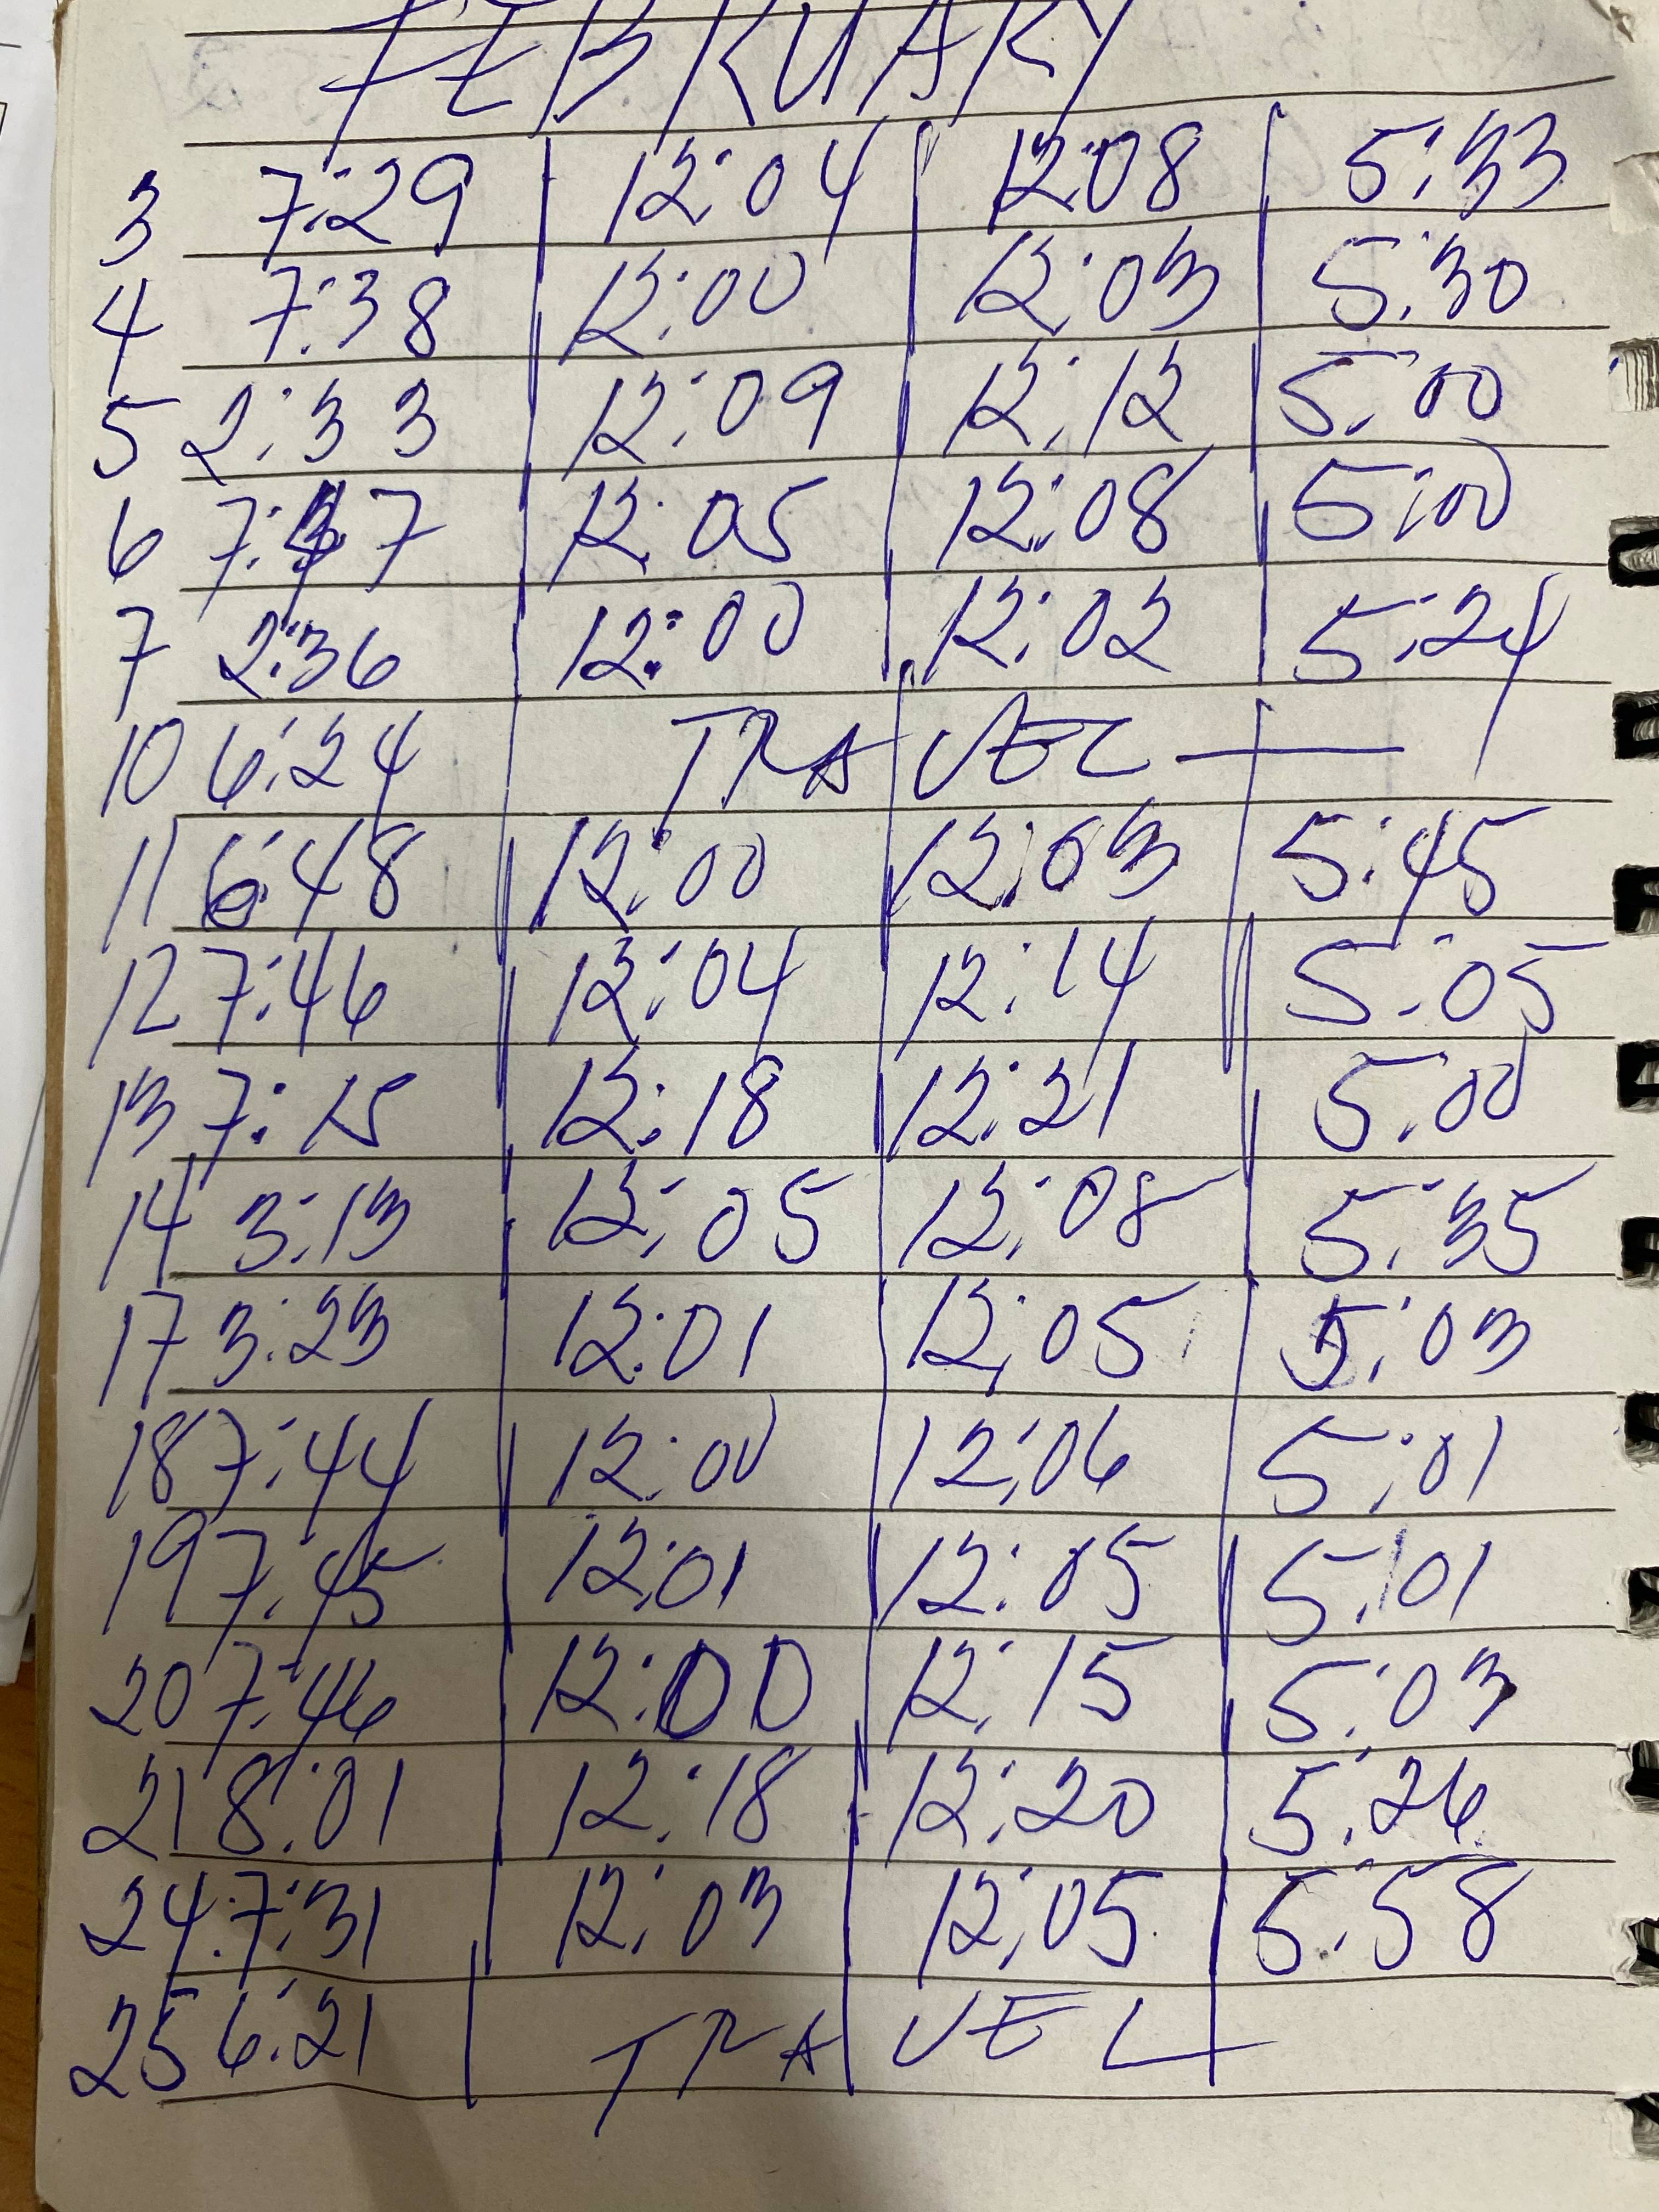 FEBRUARY
3 7:29 12:04 12:08 5:33
4 7:38 12:00 12:03 5:30
5 2:33 12:09 12:12 5:00
6 7:47 12:05 12:08 5:00
7 2:36 12:00 12:02 5:24
10 6:24 TRAVEL
11 6:48 12:00 12:03 5:45
12 7:46 12:04 12:14 5:05
13 7:15 12:18 12:21 5:00
14 3:13 12:05 12:08 5:35
17 3:23 12:01 12:05 5:03
18 7:44 12:00 12:06 5:01
19 7:45 12:01 12:05 5:01
20 7:46 12:00 12:15 5:03
21 8:01 12:18 12:20 5:26
24 7:31 12:03 12:05 5:58
25 6:21 TRAVEL